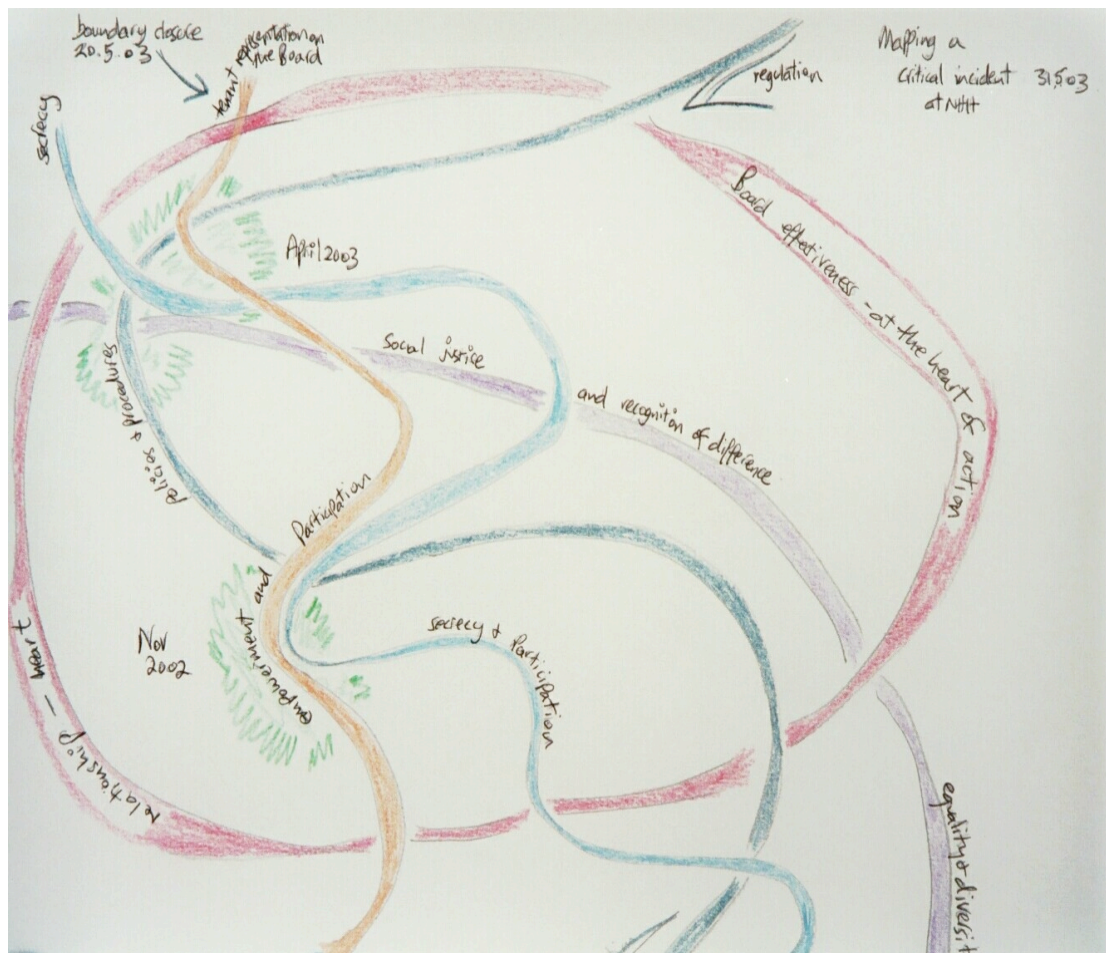 boundary closure
20.5.03
tenant representation on
the Board
regulation
Mapping a
critical incident 31.5.03
at NHH
secrecy
Board effectiveness - at the heart of action
April 2003
Social justice
and recognition of difference
policies & procedures
Participation
and
empowerment
Nov
2002
secrecy & Participation
relationship - heart
equality & diversit